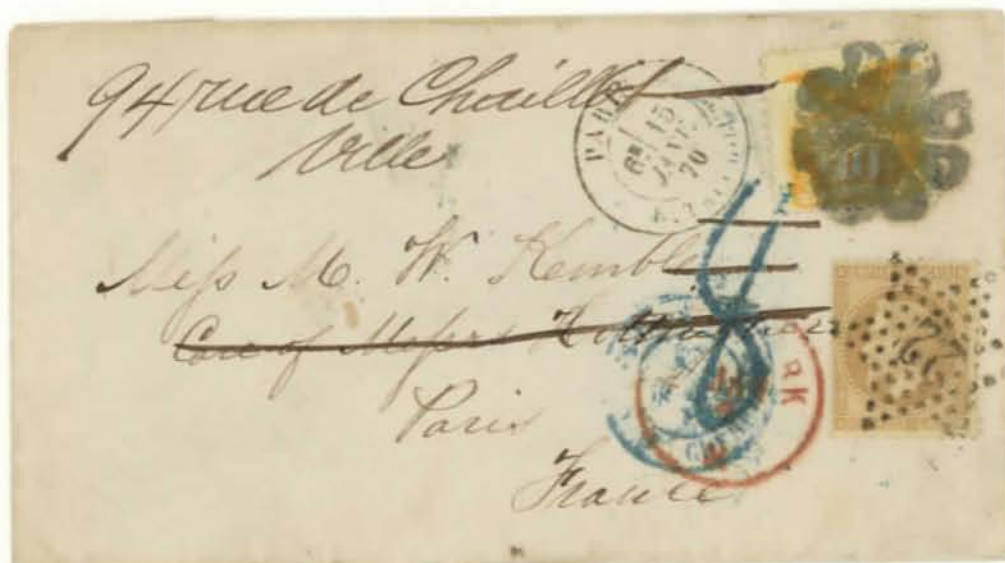 94 rue de Chaillot
Ville
PARIS
6E 15
JANV.
70
10
Miss M. W. Kemble
Care of Messrs
8
RK
Paris
France